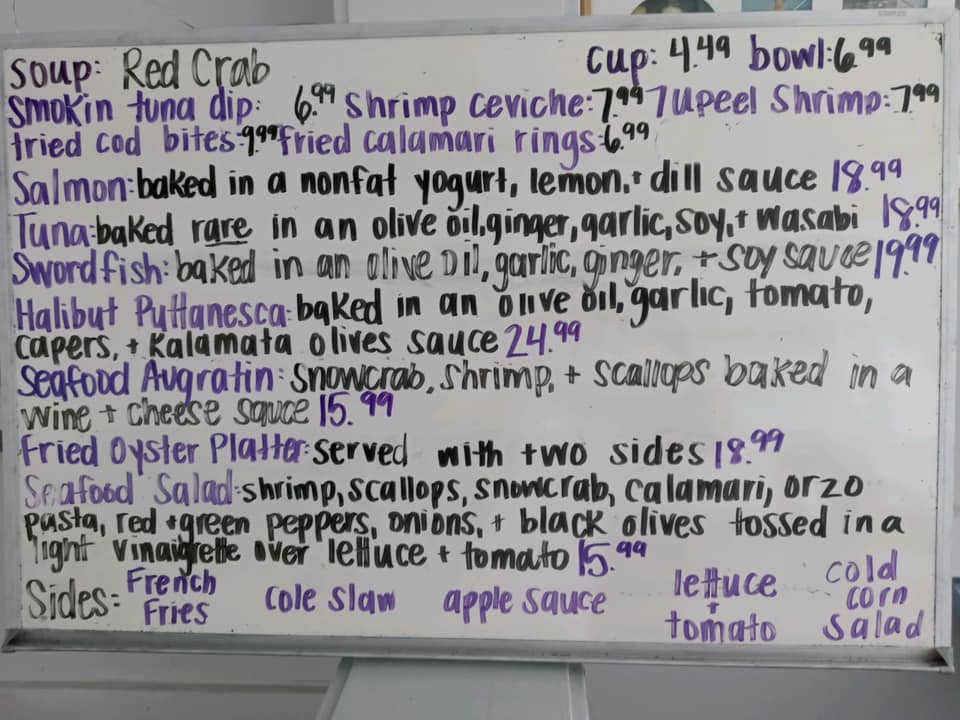 soup: Red Crab cup: 4.49 bowl: 6.99
smokin tuna dip: 6.99 shrimp ceviche: 7.99 7 upeel Shrimp: 7.99
fried cod bites: 9.99 fried calamari rings: 6.99
Salmon: baked in a nonfat yogurt, lemon, + dill sauce 18.99
Tuna: baked rare in an olive oil, ginger, garlic, soy, + wasabi 18.99
Swordfish: baked in an olive oil, garlic, ginger, + soy sauce 19.99
Halibut Puttanesca: baked in an olive oil, garlic, tomato,
capers, + Kalamata olives sauce 24.99
Seafood Augratin: snowcrab, shrimp, + scallops baked in a
wine + cheese sauce 15.99
Fried Oyster Platter: served with two sides 18.99
Seafood Salad: shrimp, scallops, snowcrab, calamari, orzo
pasta, red + green peppers, onions, + black olives tossed in a
light vinaigrette over lettuce + tomato 15.99
Sides: French Fries cole slaw apple sauce lettuce + tomato cold corn salad